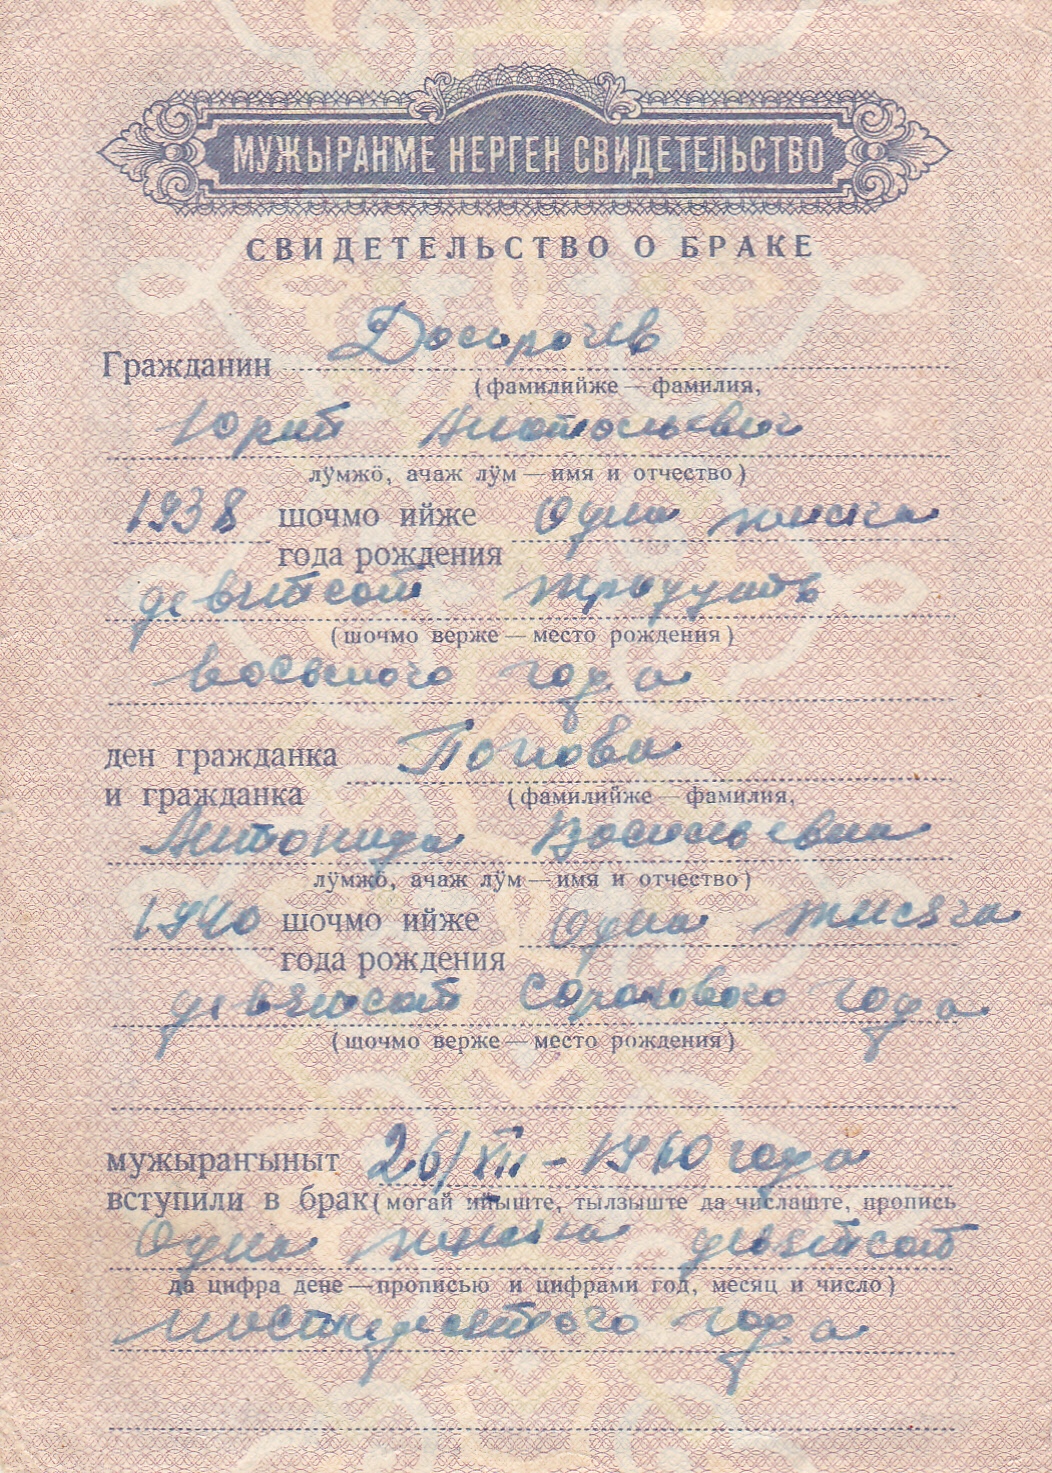 МУЖЫРАҤМЕ НЕРГЕН СВИДЕТЕЛЬСТВО
СВИДЕТЕЛЬСТВО О БРАКЕ
Гражданин
(фамилийже — фамилия,
Юрий Анатольевич
лӱмжӧ, ачаж лӱм — имя и отчество)
1938 шочмо ийже Одна тысяча
года рождения
девятсот тридцать
(шочмо верже — место рождения)
восьмого года
ден гражданка Попова
и гражданка (фамилийже — фамилия,
Антонида Васильевна
лӱмжӧ, ачаж лӱм — имя и отчество)
1940 шочмо ийже Одна тысяча
года рождения
девятсот сорокового года
(шочмо верже — место рождения)
мужыраҥыныт 26/XII - 1960 года
вступили в брак (могай ийыште, тылзыште да числаште, пропись
Одна тысяча девятсот
да цифра дене — прописью и цифрами год, месяц и число)
шестидесятого года